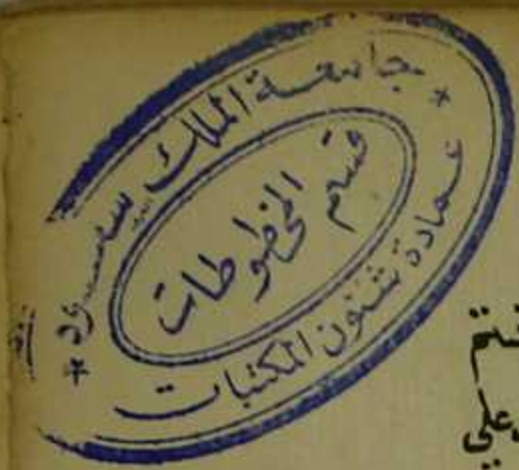 جامعة الملك سعود
قسم المخطوطات
عمادة شئون المكتبات
علي